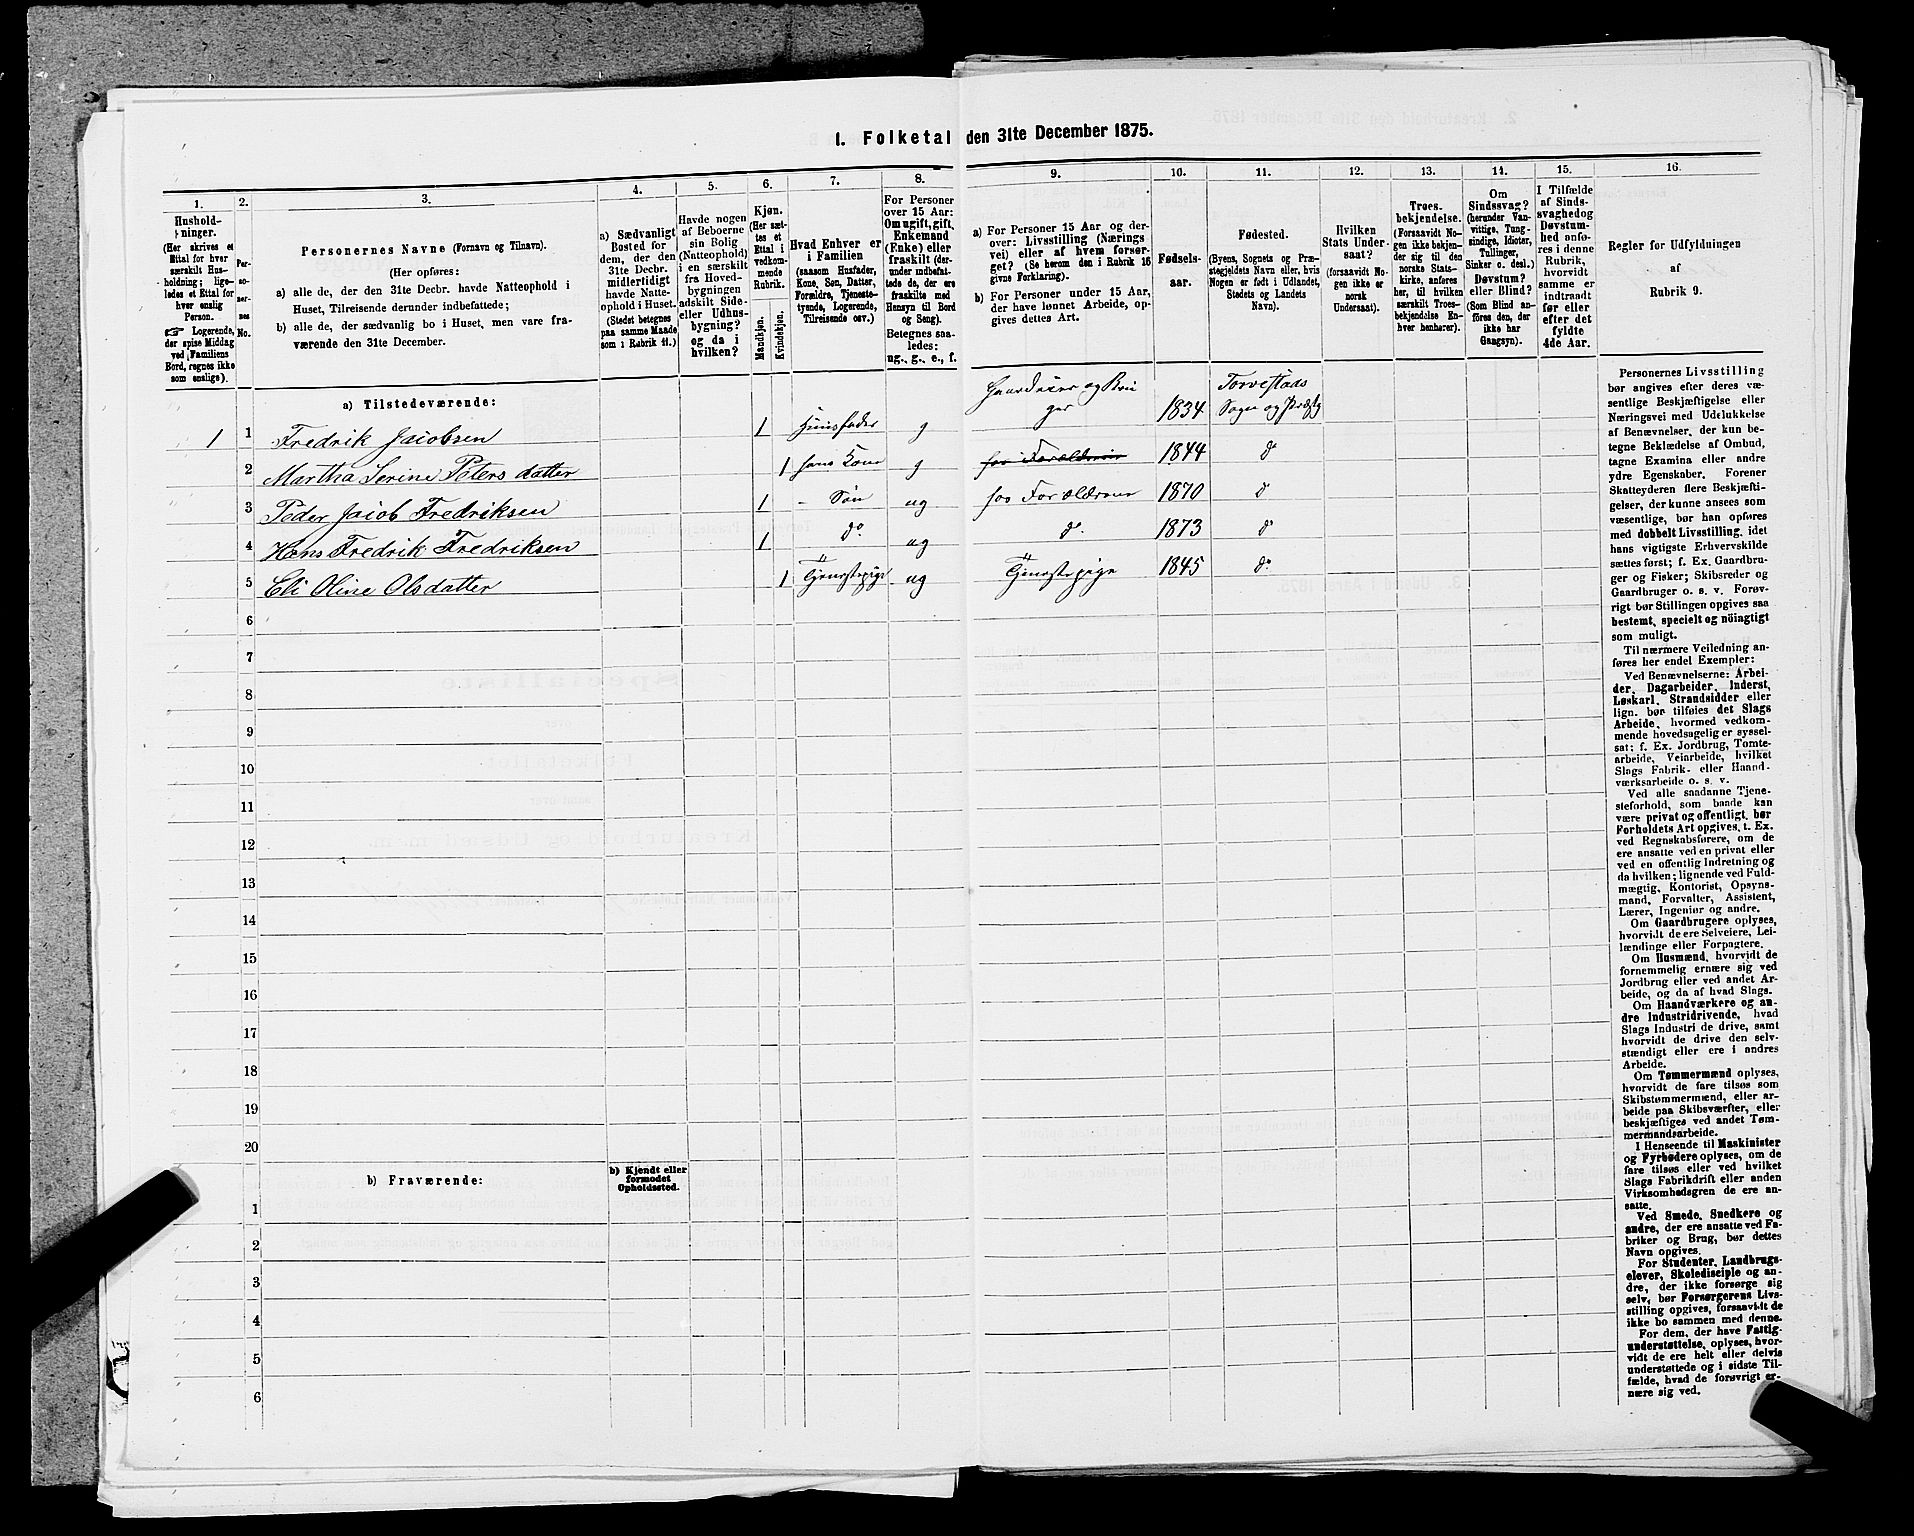 1. Folketal den 31te December 1875.
1.
Hushold-
ninger.
(Her skrives et
Ettal for hver
særskilt Hus-
holdning; lige-
ledes et Ettal for
hver enslig
Person.
☞ Logerende,
der spise Middag
ved Familiens
Bord, regnes ikke
som enslige).
2.
Per-
so-
ner-
nes
No.
3.
Personernes Navne (Fornavn og Tilnavn).
(Her opføres:
a) alle de, der den 31te Decbr. havde Natteophold i
Huset, Tilreisende derunder indbefattede;
b) alle de, der sædvanlig bo i Huset, men vare fra-
værende den 31te December.
4.
a) Sædvanligt
Bosted for
dem, der den
31te Decbr.
midlertidigt
havde Natte-
ophold i Huset.
(Stedet betegnes
paa samme Maade
som i Rubrik 11.)
5.
Havde nogen
af Beboerne
sin Bolig
(Natteophold)
i en særskilt
fra Hoved-
bygningen
adskilt Side-
eller Udhus-
bygning?
og da i
hvilken?
6.
Kjøn.
(Her sæt-
tes et
Ettal i
vedkom-
mende
Rubrik.
Mandkjøn.
Kvindekjøn.
7.
Hvad Enhver er
i Familien
(saasom Husfader,
Kone, Søn, Datter,
Forældre, Tjeneste-
tyende, Logerende,
Tilreisende osv.)
8.
For Personer
over 15 Aar:
Om ugift, gift,
Enkemand
(Enke) eller
fraskilt (der-
under indbefat-
tede de, der ere
fraskilte med
Hensyn til Bord
og Seng).
Betegnes saa-
ledes:
ug., g., e., f.
9.
a) For Personer 15 Aar og der-
over: Livsstilling (Nærings
vei) eller af hvem forsør-
get? (Se herom den i Rubrik 16
givne Forklaring).
b) For Personer under 15 Aar,
der have lønnet Arbeide, op-
gives dettes Art.
10.
Fødsels-
aar.
11.
Fødested.
(Byens, Sognets og Præ-
stegjeldets Navn, eller, hvis
Nogen er født i Udlandet,
Stedets og Landets
Navn).
12.
Hvilken
Stats Under-
saat?
(forsaavidt No-
gen ikke er
norsk
Undersaat).
13.
Troes-
bekjendelse.
(Forsaavidt No-
gen ikke bekjen-
der sig til den
norske Stats-
kirke, anføres
her, til hvilken
særskilt Troes-
bekjendelse En-
hver henhører).
14.
Om
Sindssvag?
(herunder Van-
vittige, Tung-
sindige, Idioter,
Tullinger,
Sinker o. desl.)
Døvstum?
eller Blind?
(Som Blind an-
føres den, der
ikke har
Gangsyn).
15.
I Tilfælde
af Sinds-
svaghed og
Døvstum-
hed anfø-
res i denne
Rubrik,
hvorvidt
samme er
indtraadt
før eller
efter det
fyldte
4de Aar.
16.
Regler for Udfyldningen
af
Rubrik 9.
a) Tilstedeværende:
1 1 Fredrik Jacobsen 1 Huusfader g Gaardeier og Bru
ger 1834 Torvestads
Sogn og Præstg
2 Martha Serine Peters datter 1 hans Kone g hos Forældrene 1844 do
3 Peder Jacob Fredriksen 1 - Søn ug hos Forældrene 1870 do
4 Hans Fredrik Fredriksen 1 do. ug do. 1873 do
5 Eli Oline Olsdatter 1 Tjenestepige ug Tjenestepige 1845 do.
6
7
8
9
10
11
12
13
14
15
16
17
18
19
20
b) Fraværende:
b) Kjendt eller
formodet
Opholdssted.
1
2
3
4
5
6
Personernes Livsstilling
bør angives efter deres væ-
sentlige Beskjæftigelse eller
Næringsvei med Udelukkelse
af Benævnelser, der kun be-
tegne Beklædelse af Ombud,
tagne Examina eller andre
ydre Egenskaber. Forener
Skatteyderen flere Beskjæfti-
gelser, der kunne ansees som
væsentlige, bør han opføres
med dobbelt Livsstilling, idet
hans vigtigste Erhvervskilde
sættes først; f. Ex. Gaardbru-
ger og Fisker; Skibsreder og
Gaardbruger o. s. v. Forøv-
rigt bør Stillingen opgives saa
bestemt, specielt og nöiagtigt
som muligt.
Til nærmere Veiledning an-
føres her endel Exempler:
Ved Benævnelserne: Arbei-
der, Dagarbeider, Inderst,
Løskarl, Strandsidder eller
lign. bør tilføies det Slags
Arbeide, hvormed vedkom-
mende hovedsagelig er syssel-
sat; f. Ex. Jordbrug, Tomte-
arbeide, Veiarbeide, hvilket
Slags Fabrik- eller Haand-
værksarbeide o. s. v.
Ved alle saadanne Tjene-
steforhold, som baade kan
være privat og offentligt, bør
Forholdets Art opgives, t. Ex.
ved Regnskabsførere, om de
ere ansatte ved en privat eller
ved en offentlig Indretning og
da hvilken; lignende ved Fuld-
mægtig, Kontorist, Opsyns-
mand, Forvalter, Assistent,
Lærer, Ingeniør og andre.
Om Gaardbrugere oplyses,
hvorvidt de ere Selveiere, Lei-
lændinge eller Forpagtere.
Om Husmænd, hvorvidt de
fornemmelig ernære sig ved
Jordbrug eller ved andet Ar-
beide, og da af hvad Slags.
Om Haandværkere og an-
dre Industridrivende, hvad
Slags Industri de drive, samt
hvorvidt de drive den selv-
stændigt eller ere i andres
Arbeide.
Om Tømmermænd oplyses,
hvorvidt de fare tilsøs som
Skibstømmermænd, eller ar-
beide paa Skibsværfter, eller
beskjæftiges ved andet Tøm-
mermandsarbeide.
I Henseende til Maskinister
og Fyrbødere oplyses, om de
fare tilsøs eller ved hvilket
Slags Fabrikdrift eller anden
Virksomhedsgren de ere an-
satte.
Ved Smede, Snedkere og
andre, der ere ansatte ved Fa-
briker og Brug, bør dettes
Navn opgives.
For Studenter, Landbrugs-
elever, Skoledisciple og an-
dre, der ikke forsørge sig
selv, bør Forsørgerens Livs-
stilling opgives, forsaavidt de
ikke bo sammen med denne.
For dem, der have Fattig-
understøttelse, oplyses, hvor-
vidt de ere helt eller delvis
understøttede og i sidste Til-
fælde, hvad de forøvrigt er-
nære sig ved.